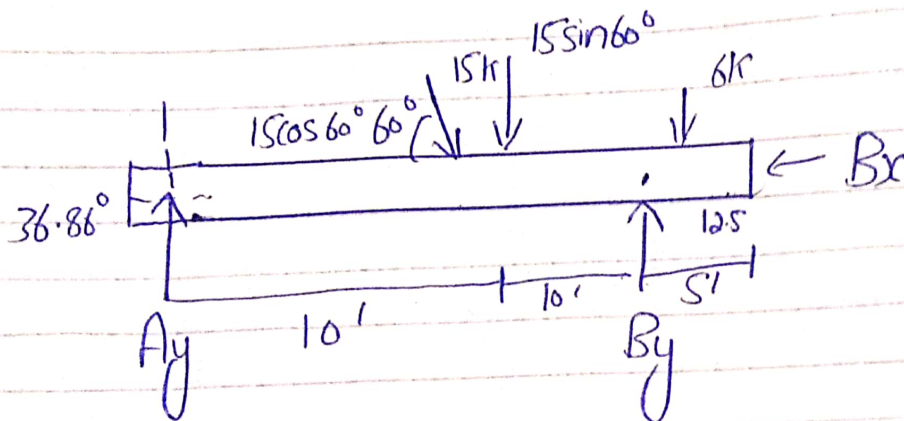 15sin60°
15k
6k
15cos60° 60°
Bx
36.86°
12.5
10'
10'
5'
Ay
By